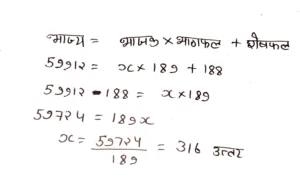 भाज्य = भाजक × भागफल + शेषफल
59912 = x × 189 + 188
59912 - 188 = x × 189
59724 = 189x
x = 59724 / 189 = 316 उत्तर